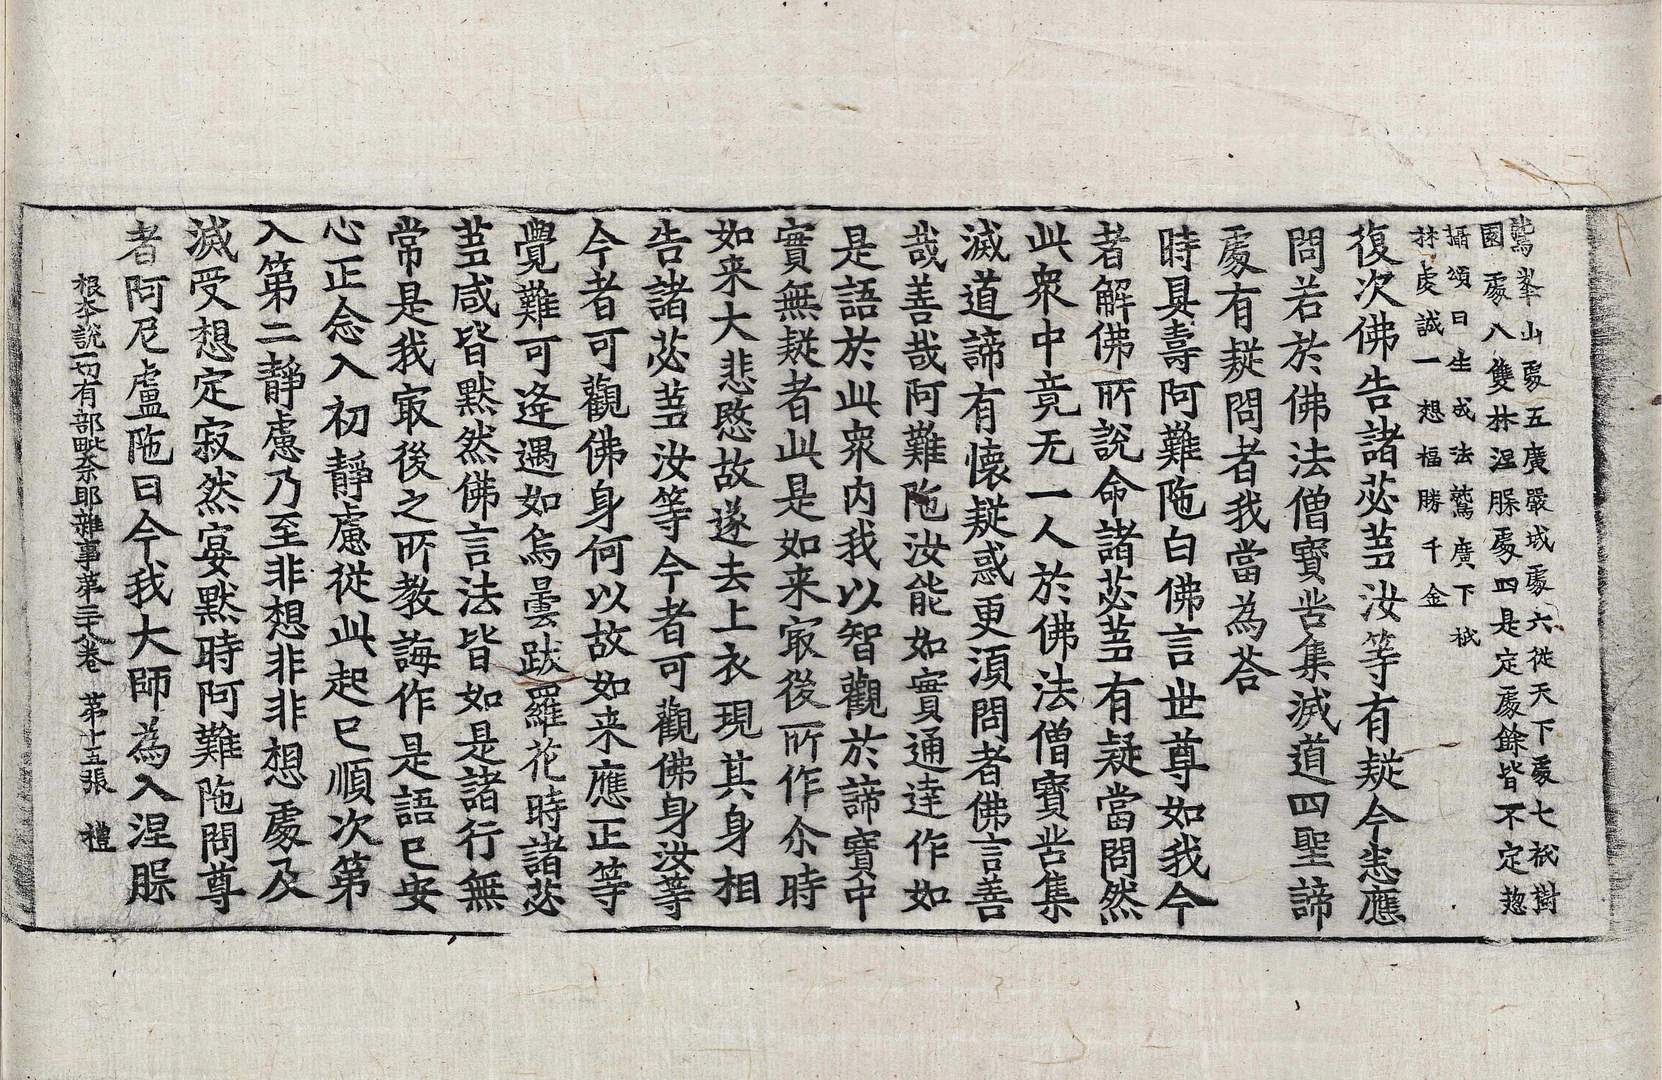 鷲峯山處五廣嚴城處六從天下處七祇樹
園處八雙林涅槃處四是定處餘皆不定惣
攝頌曰生成法鷲廣下祇
林處誠一想福勝千金
復次佛告諸苾蒭汝等有疑今悉應
問若於佛法僧寶苦集滅道四聖諦
處有疑問者我當為荅
時具壽阿難陁白佛言世尊如我今
者解佛所說命諸苾蒭有疑當問然
此衆中竟无一人於佛法僧寶苦集
滅道諦有懷疑惑更湏問者佛言善
㢤善㢤阿難陁汝能如實通達作如
是語於此衆內我以智觀於諦寶中
實無疑者此是如来㝡後所作尒時
如来大悲愍故遂去上衣現其身相
告諸苾蒭汝等今者可觀佛身汝等
今者可觀佛身何以故如来應正等
覺難可逄遇如烏曇跋羅花時諸苾
蒭咸皆默然佛言法皆如是諸行無
常是我㝡後之所教誨作是語已安
心正念入初靜慮從此起已順次第
入第二靜慮乃至非想非非想處及
滅受想定寂然宴默時阿難陁問尊
者阿尼盧陁曰今我大師為入涅槃
根本說一切有部毗奈耶雜事第三十八卷　第十五張　禮